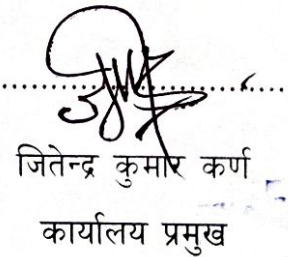 जितेन्द्र कुमार कर्ण
कार्यालय प्रमुख